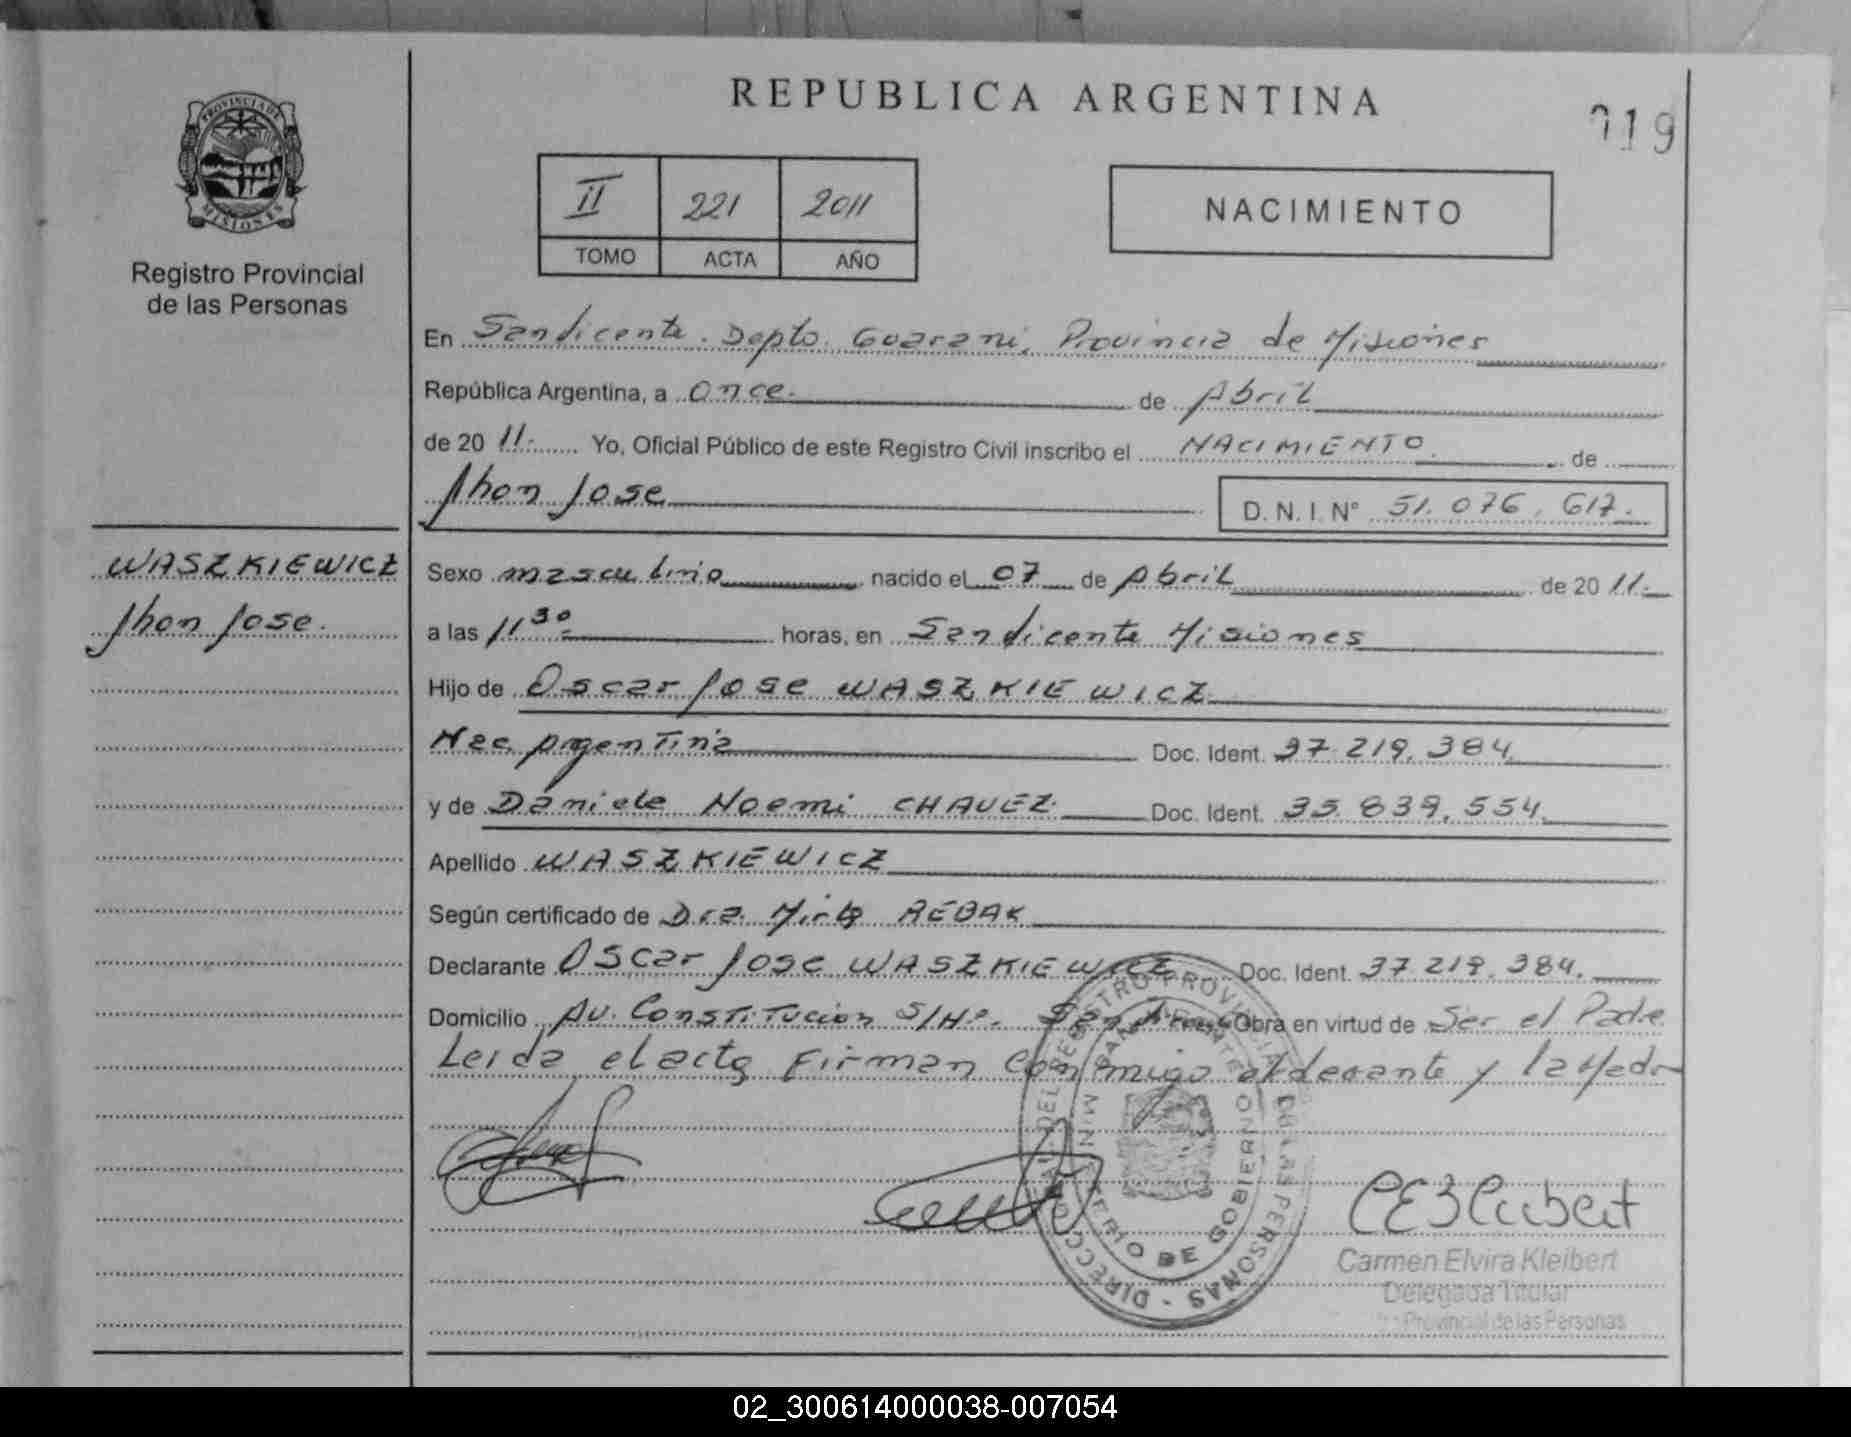 REPUBLICA ARGENTINA
019
PROVINCIA DE
MISIONES
Registro Provincial
de las Personas
II 221 2011
TOMO ACTA AÑO
NACIMIENTO
En San Vicente. Depto. Guarani, Provincia de Misiones
República Argentina, a once. de Abril
de 20 11.- Yo, Oficial Público de este Registro Civil inscribo el NACIMIENTO de
Jhon Jose D. N. I. N° 51.076.617.
WASZKIEWICZ
Jhon Jose.
Sexo masculino nacido el 07 de Abril de 20 11.
a las 11 30 horas, en San Vicente Misiones
Hijo de Oscar Jose WASZKIEWICZ
Nac. Argentina Doc. Ident. 37.219.384.
y de Daniela Noemi CHAVEZ. Doc. Ident. 35.839.554.
Apellido WASZKIEWICZ
Según certificado de Dra. Mirta REBAK
Declarante Oscar Jose WASZKIEWICZ Doc. Ident. 37.219.384.
Domicilio Av. Constitucion S/Nº. San Vicente Obra en virtud de Ser el Padre
Leida el acta Firman Conmigo el y la Madre
DIRECCION DEL REGISTRO PROVINCIAL DE LAS PERSONAS -
MINISTERIO DE GOBIERNO
Carmen Elvira Kleibert
Delegada Titular
Provincial de las Personas
02_300614000038-007054